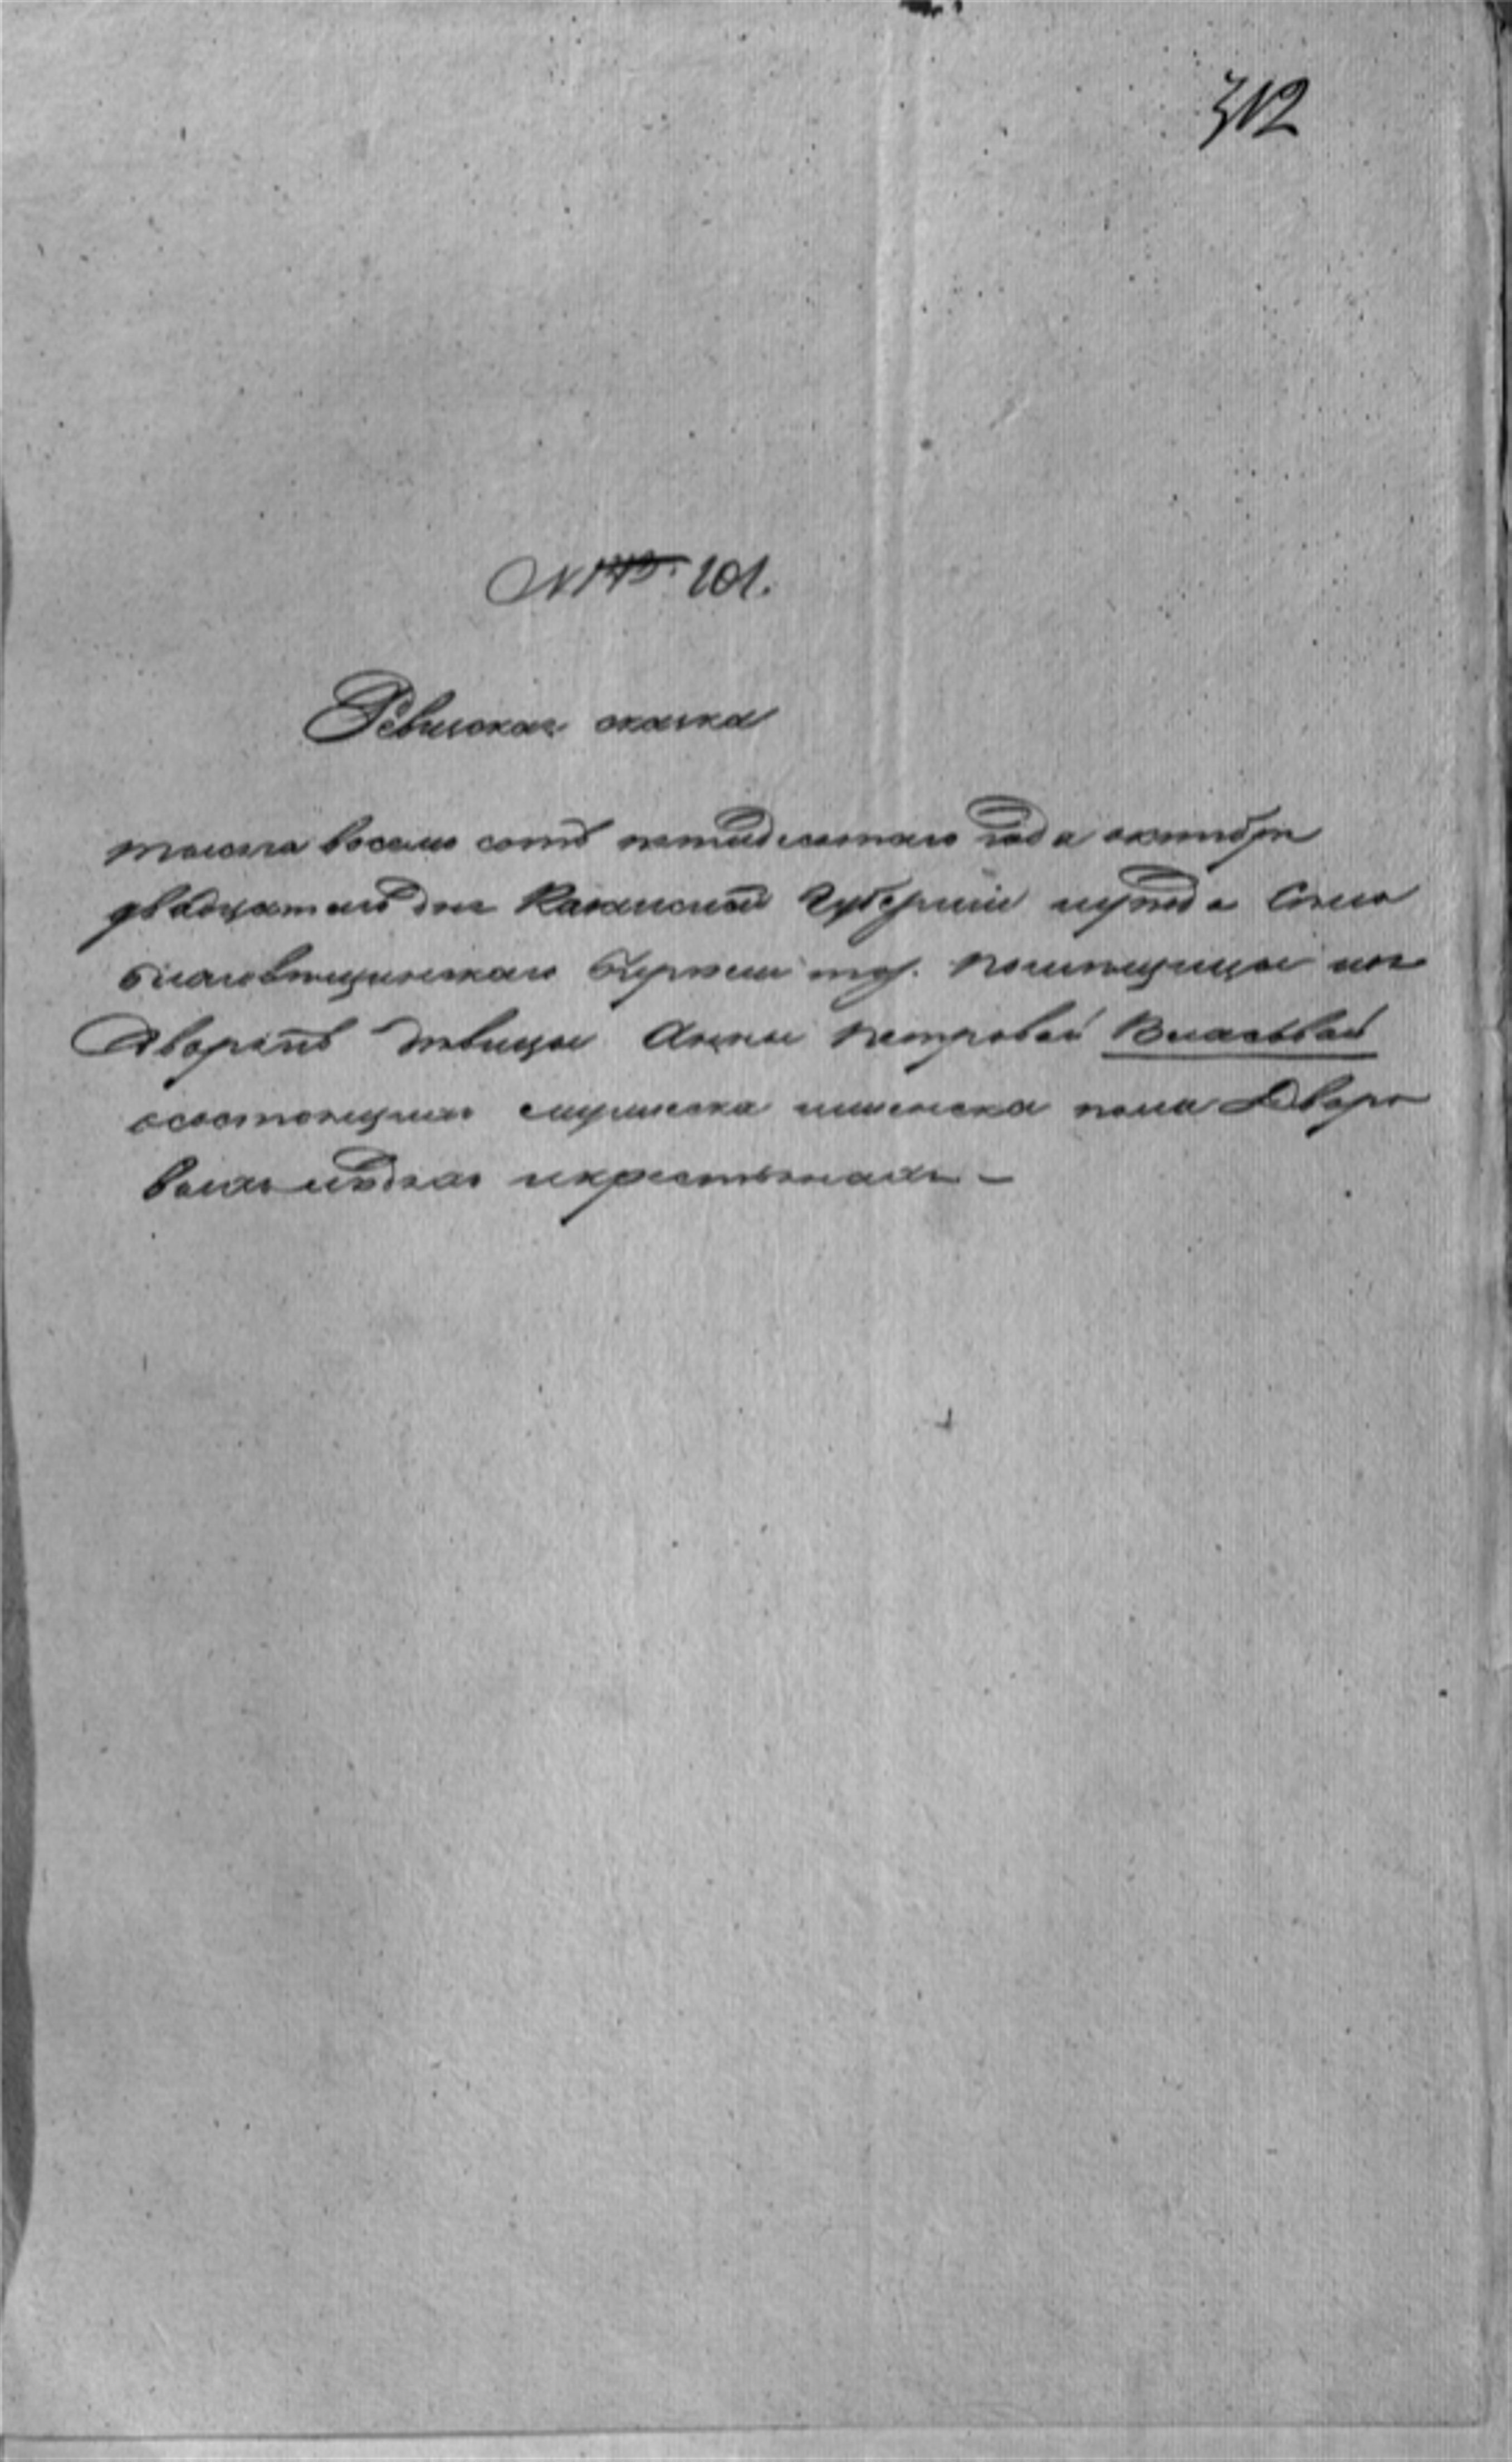 312
№ 101.
Ревиская скаска
тысеча восемь сотъ петидесятаго года октября
двадцатаго дня Казанской Губернии уезда Села
благовещинскаго тож. помещицы из
Дворянъ девицы Анны петровой Власьвой
осостоящихъ мужеска иженска пола Дворо
выхъ людяхъ икрестьянахъ –